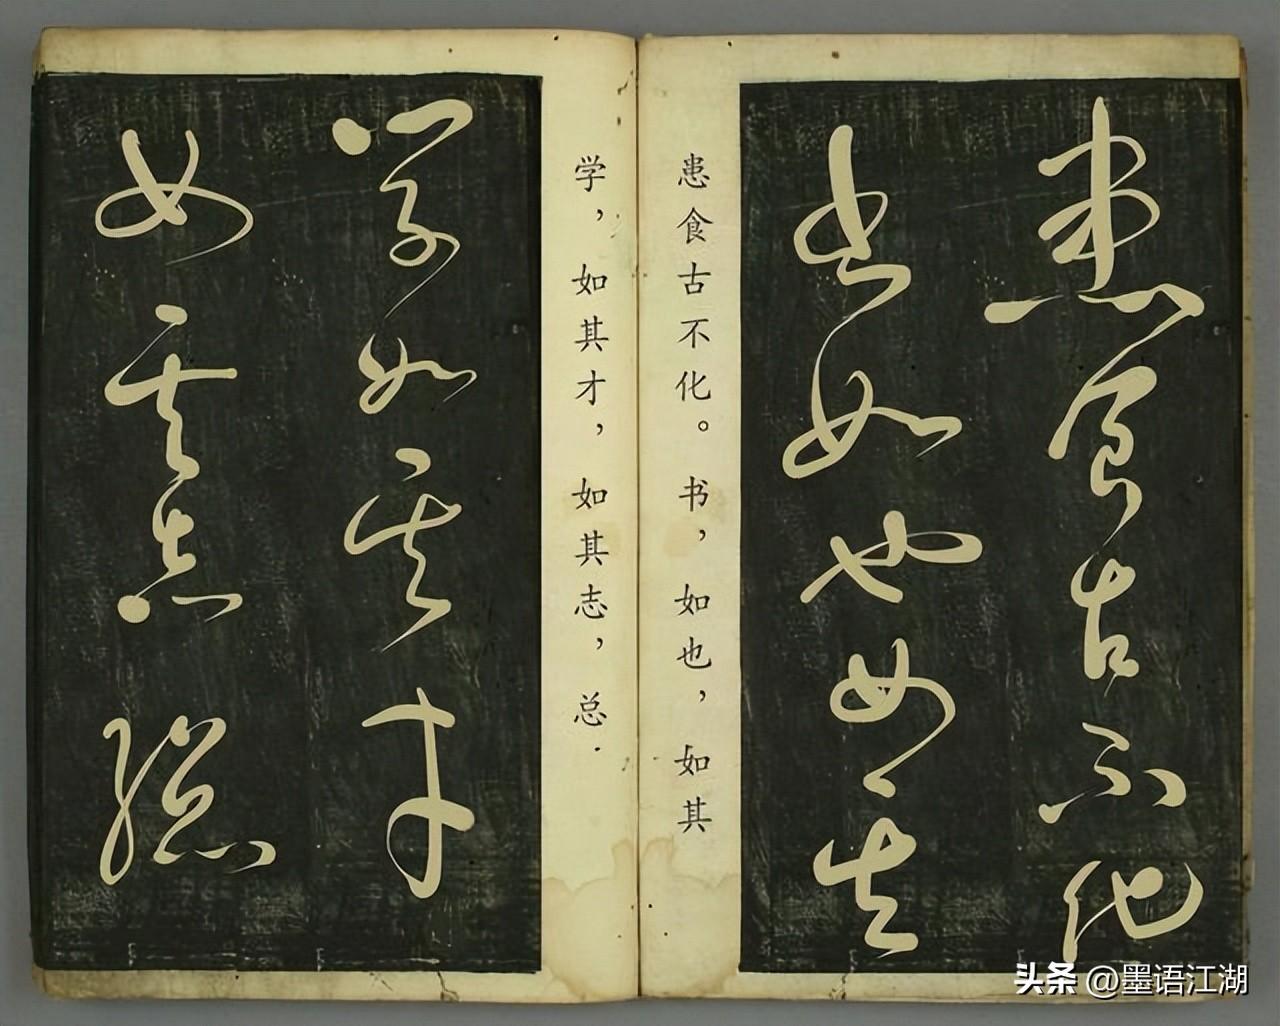 患食古不化
书如也如其
患食古不化。书，如也，如其
学，如其才，如其志，总.
学如其才
如其志总
头条 @墨语江湖